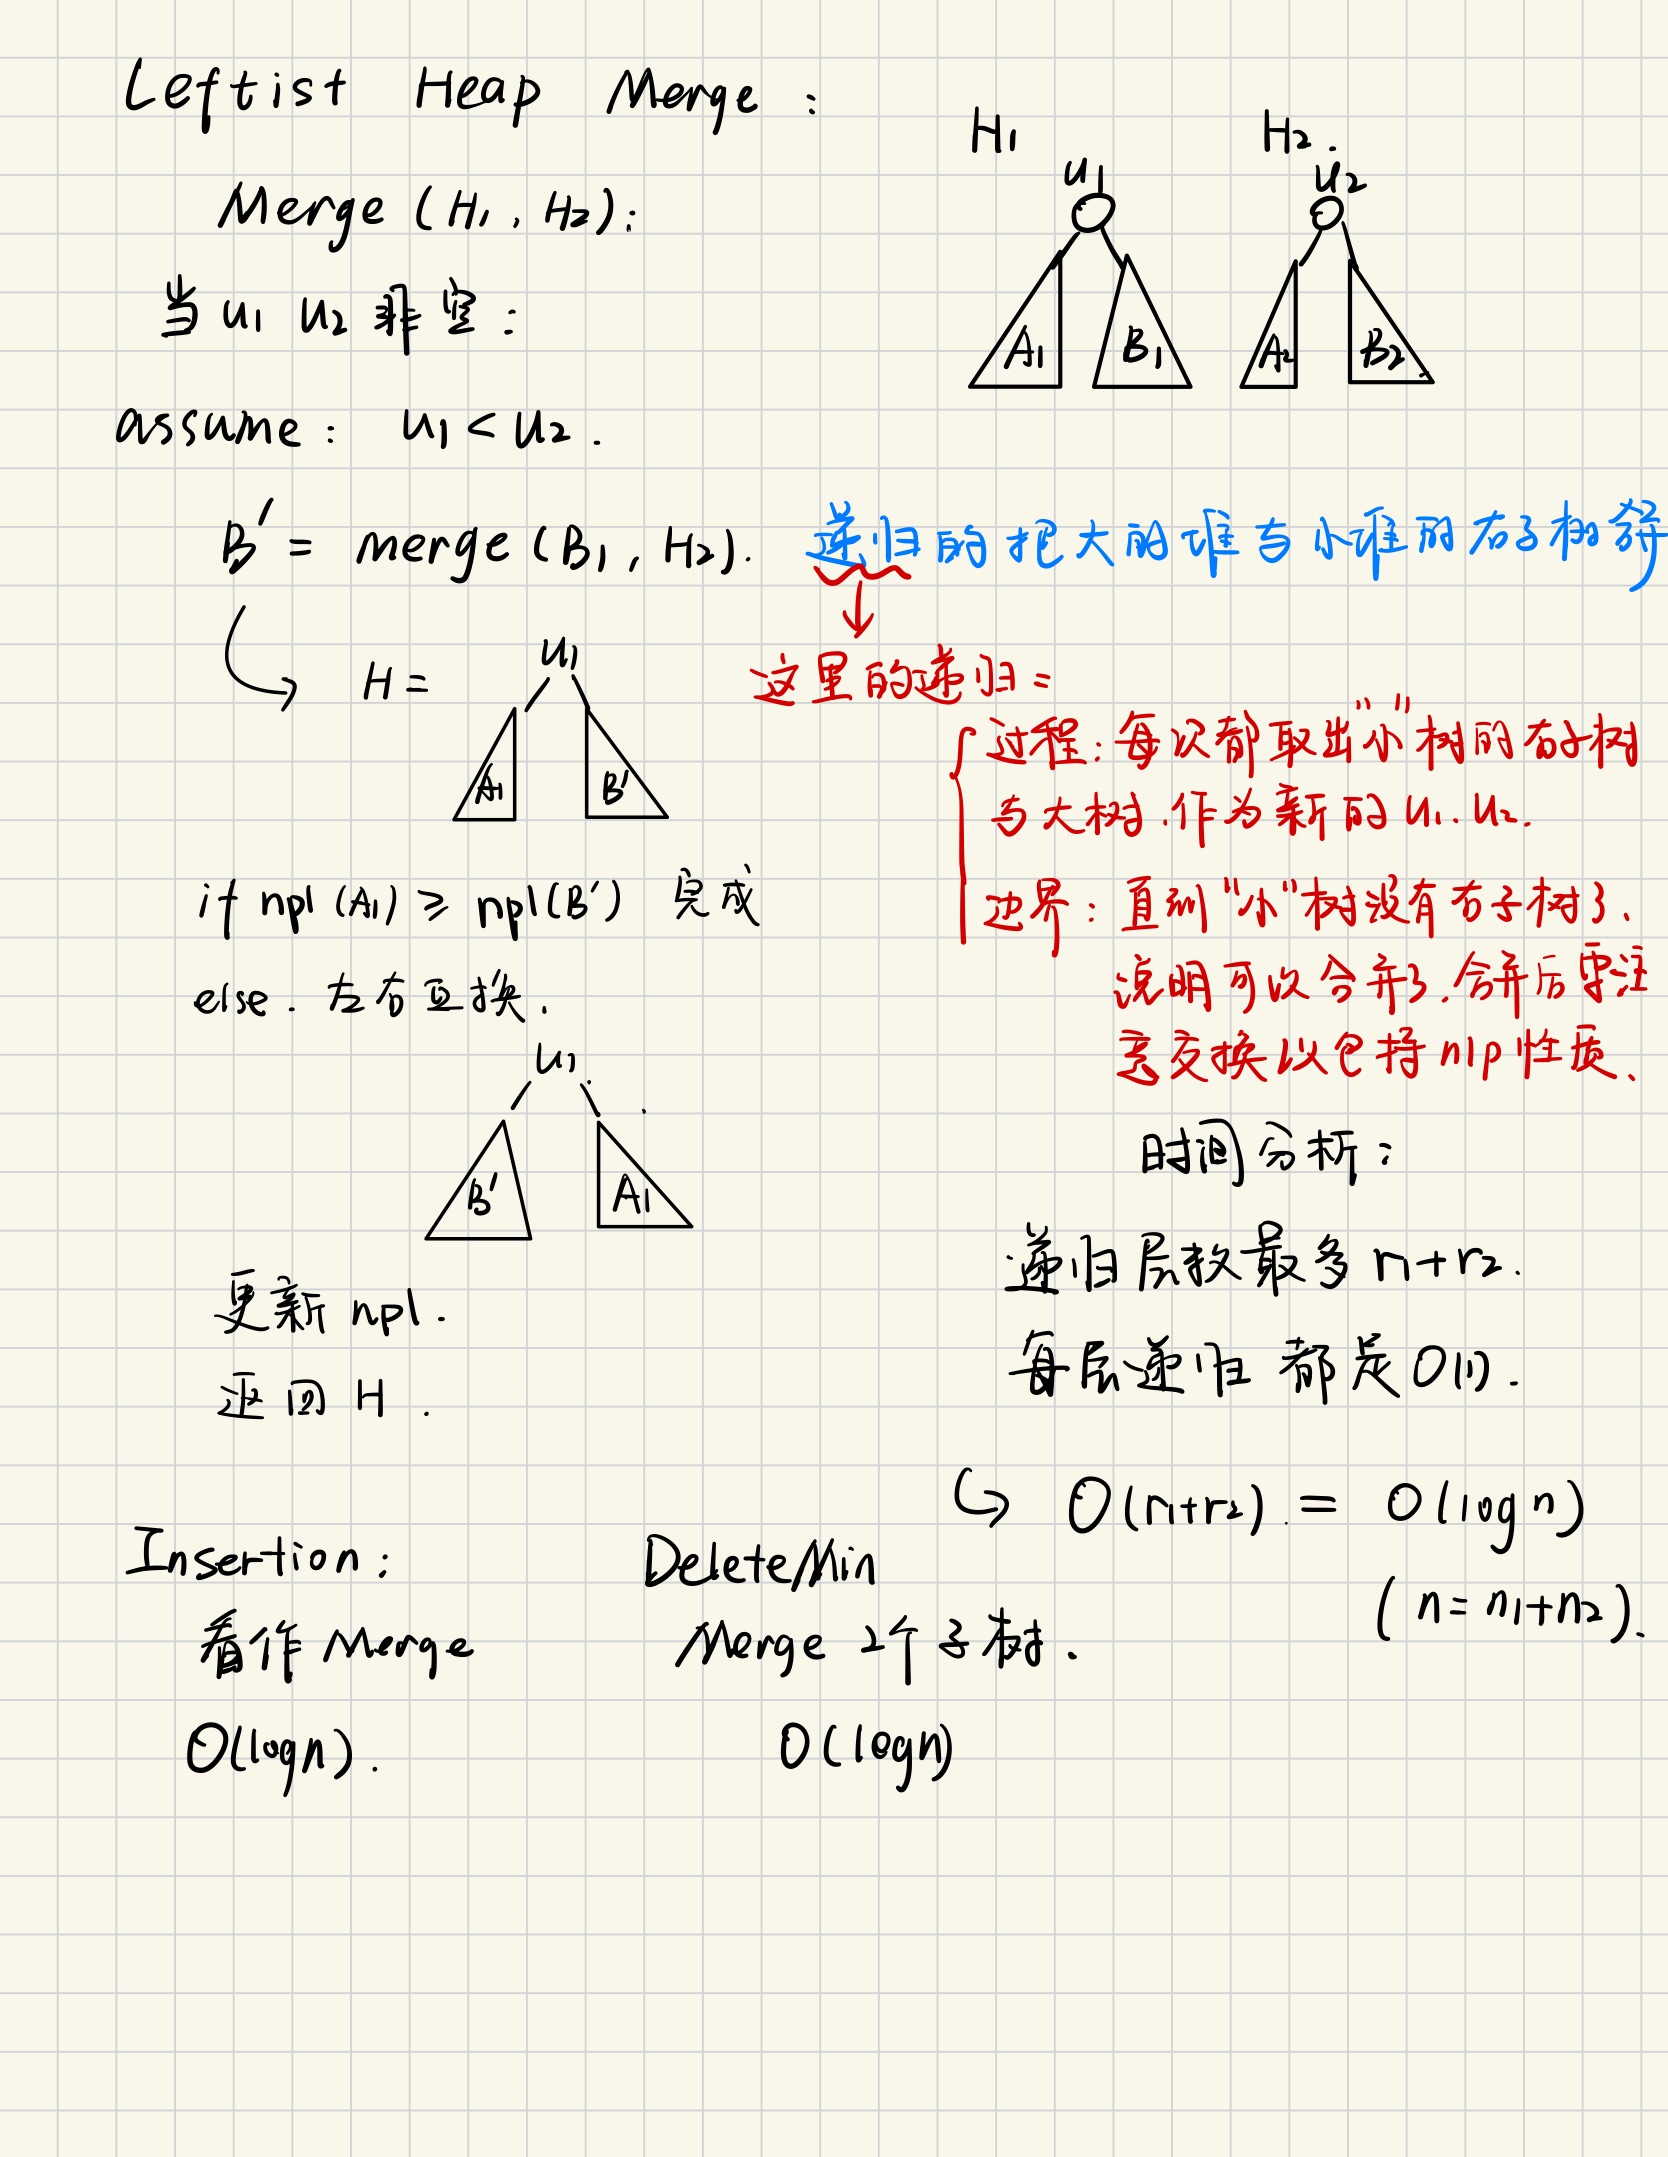 Leftist Heap Merge :
H1 H2.
u1 u2
Merge (H1, H2):
当 u1 u2 非空:
A1 B1 A2 B2
assume: u1 < u2.
B' = merge (B1, H2). 递归的把大的堆与小堆的右子树
H = u1
A1 B'
这里的递归:
过程: 每次都取出"小"树的右子树
与大树.作为新的 u1. u2.
边界: 直到"小"树没有右子树了.
说明可以合并了.合并后要注
意交换以包持nlp性质.
if npl (A1) ≥ npl(B') 完成
else. 左右互换.
u1
B' A1
更新 npl.
返回 H .
时间分析:
递归层数最多 r1+r2.
每层递归 都是 O(1).
O(r1+r2). = O(log n)
(n = n1+n2).
Insertion:
看作 Merge
O(logn).
DeleteMin
Merge 2个子树.
O(logn)